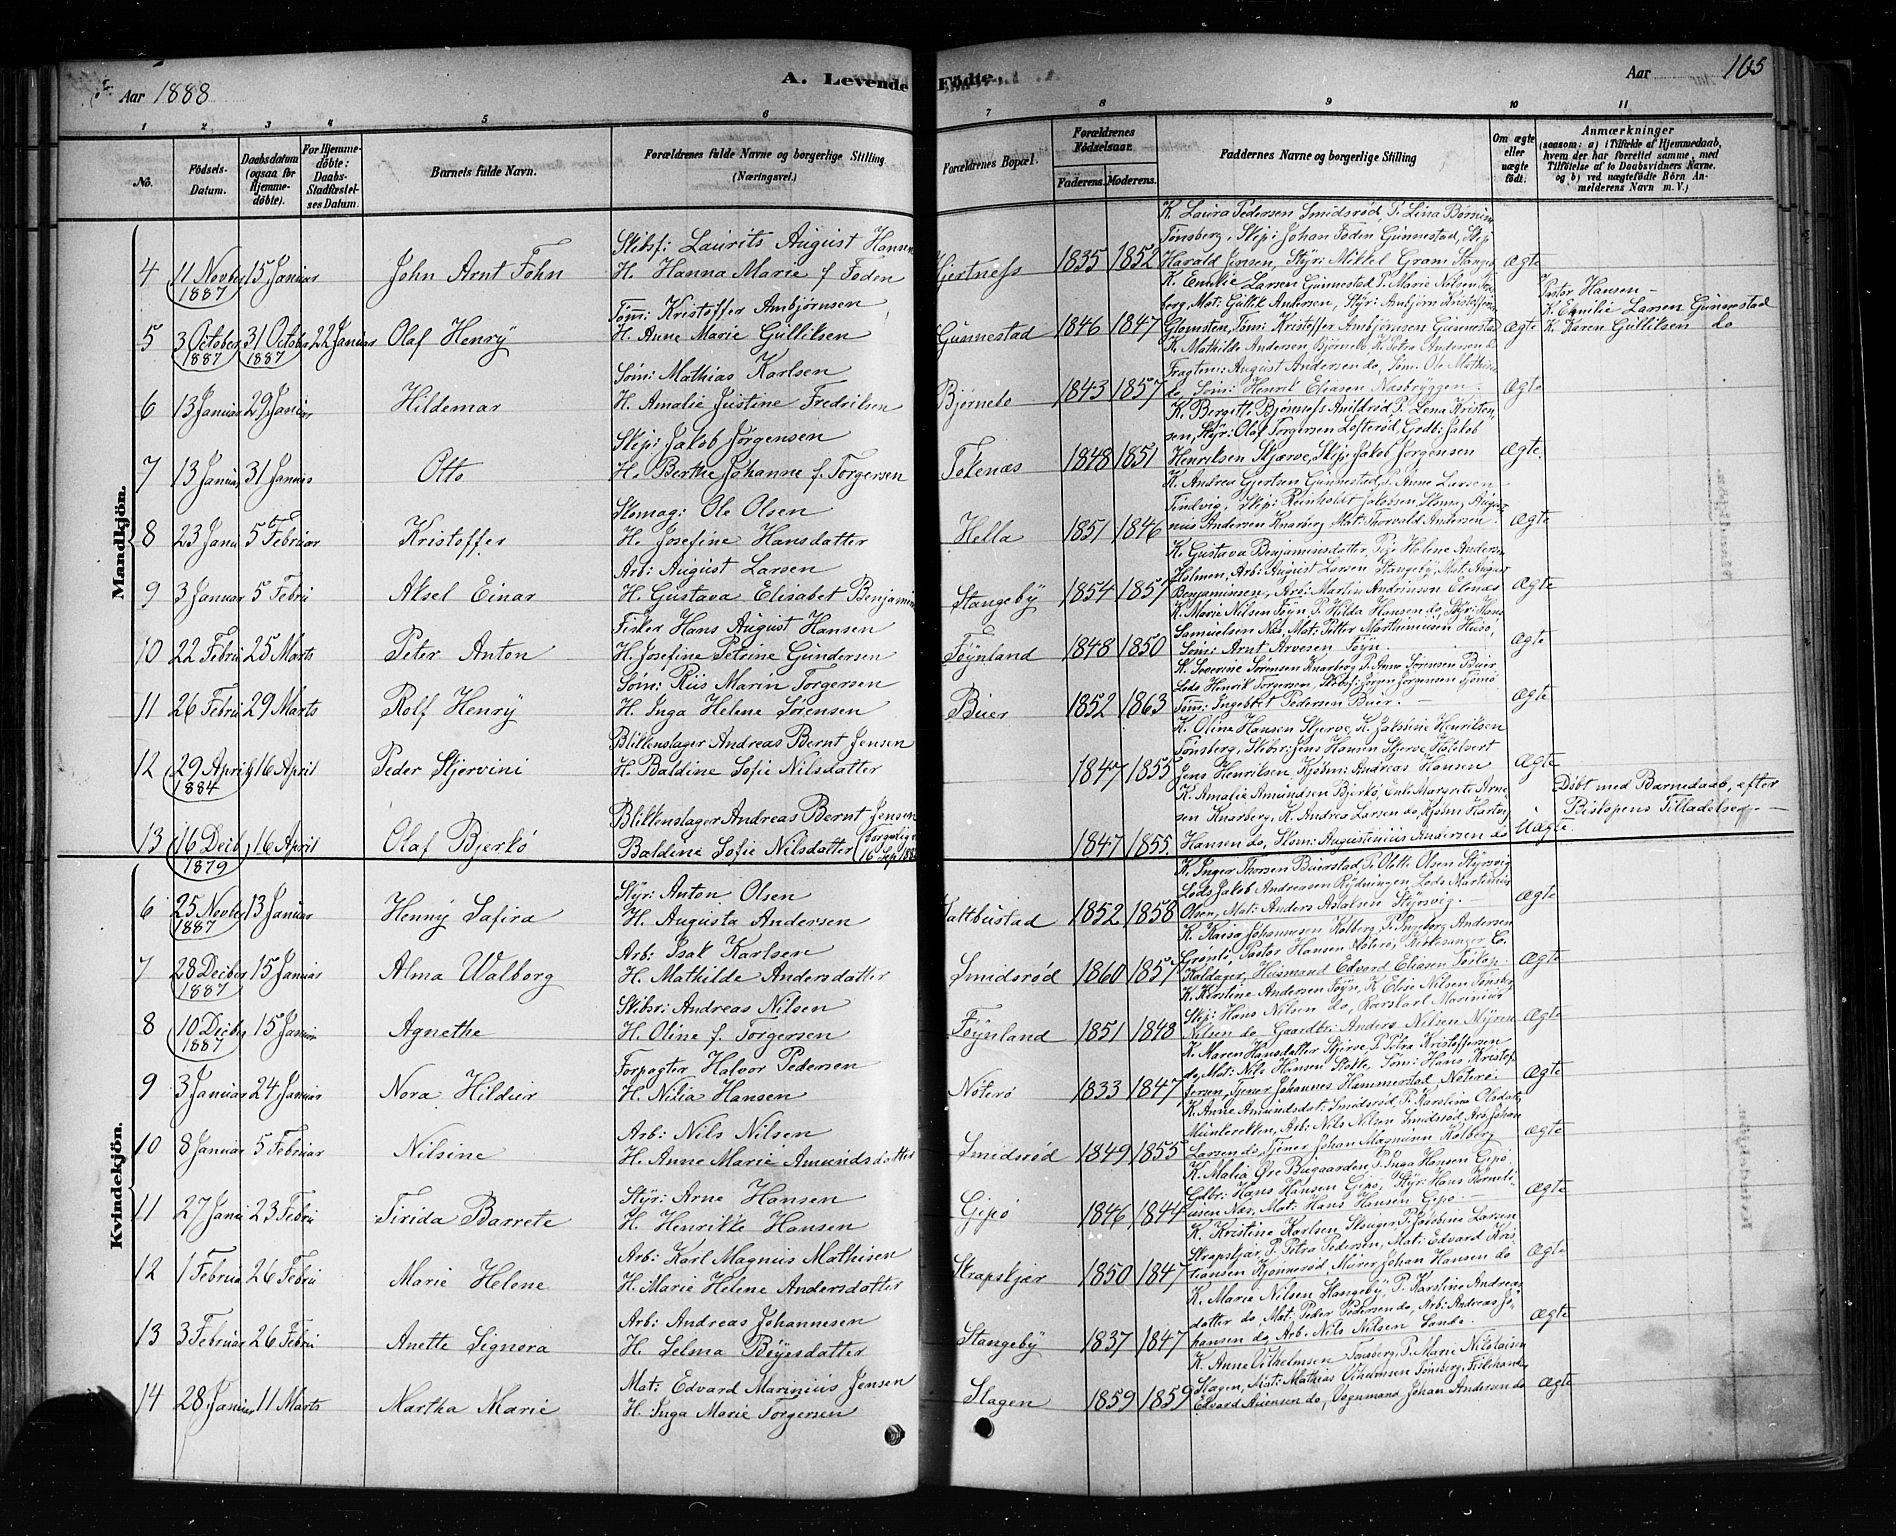 Aar 1888
A. Levende Fødte.
Aar 165
1 2 3 4 5 6 7 8 9 10 11
No.
Fødsels-Datum.
Daabsdatum (ogsaa for Hjemmedöbte).
For Hjemmedöbte: Daabs-Stadfæstelses Datum.
Barnets fulde Navn.
Forældrenes fulde Navne og borgerlige Stilling (Næringsvei.)
Forældrenes Bopæl.
Forældrenes Fødselsaar.
Faderens. Moderens.
Faddernes Navne og borgerlige Stilling
Om ægte eller uægte født.
Anmærkninger
(saasom: a) i Tilfælde af Hjemmedaab, hvem der har forrettet samme, med Tilføielse af to Daabsvidners Navne, og b) ved uægtefödte Börn Anmelderens Navn m. V.)
Mandkjön.
4 11 Novber 1887 15 Januar John Arnt Føhn
Skibsf: Laurits August Hansen
H. Hanna Marie f. Foden
Hjertness 1835 1852
K. Laura Pedersen Smidsrød, P. Lina
Tønsberg, Skip: Johan Foden Gunnestad, Skip
Harald Jensen, Styr: Mikkel Gram
Ægte
5 3 October 1887 31 Octobr 1887 22 Januar Olaf Henry
Tøm: Kristoffer Ambjørnsen
H. Anne Marie Gulliksen
Gunnestad 1846 1847
K. Emilie Larsen Gunnestad P. Marie Nilsen
berg, Mat: Gullik Andersen, Styr: Ambjørn Kristoffersen
Tøm: Kristoffer Ambjørnsen Gunnestad
Ægte
Pastor Hansen –
K. Emilie Larsen Gunnestad
K. Karen Gulliksen do
6 13 Januar 29 Januar Hildemar
Søm: Mathias Karlsen
H. Amalie Justine Fredriksen
Bjørnebo 1843 1857
K. Mathilde Andersen Bjørnebo, K. Petra Andersen do
August Andersen do, Søm: Ole Mathisen
do, Søm: Henrik Eliasen Næsbryggen.
Ægte
7 13 Januar 31 Januar Otto
Skip: Jakob Jørgensen
H. Berthe Johanne f. Torgersen
Tokenæs 1848 1851
K. Bergitte Bjønness P. Lena Kristen
sen, Styr: Olaf Torgersen Lofterød, Gdbr: Jakob
Henriksen Skjerve, Skip: Jakob Jørgensen
Ægte.
8 23 Janu 5 Februar Kristoffer
Skomag: Ole Olsen
H. Josefine Hansdatter
Hella 1851 1846
K. Andrea Gjertsen Gunnestad, P. Anne Larsen
Skip: Reinholdt Jakobsen
Andersen Knarberg Mat: Thorvald Andersen.
Ægte
9 3 Januar 5 Febru Aksel Einar
Arb: August Larsen
H. Gustava Elisabet Benjamin
Stangeby 1854 1857
K. Gustava Benjaminsdatter, Pige Helene Andersen
Holmen, Arb: August Larsen Stangeby, Mat: August
Benjaminsen, Arb: Martin Andrinsen Elenæs
Ægte
10 22 Febru 25 Marts Peter Anton
Fisker Hans August Hansen
H. Josefine Petrine Gundersen
Føynland 1848 1850
K. Marie Nilsen Føyn, P. Hilda Hansen do, Styr: Hans
Samuelsen Næs, Mat: Petter Marthiniusen Husø,
Søm: Arnt Arvesen Føyn.
Ægte
11 26 Febru 29 Marts Rolf Henry
Søm: Riis Marin Torgersen
H. Inga Helene Sørensen
Buer 1852 1863
K. Severine Sørensen Knarberg P. Anne Sørensen Buer
Lods Henrik Torgersen, Skibsf: Jørgen Jørgensen Tjømø
Tøm: Ingebret Pedersen Buer. –
Ægte
12 29 April 1884 16 April Peder Skjervini
Blikkenslager Andreas Bernt Jensen
H. Baldine Sofie Nilsdatter
1847 1855
K. Oline Hansen Skjerve, K. Jakobine Henriksen
Tønsberg, Skibsr: Jens Hansen Skjerve, Hotelvert
Jens Henriksen, Kjøbm: Andreas Hansen
Ægte
13 16 Decb 1879 16 April Olaf Bjerkø
Blikkenslager Andreas Bernt Jensen
Baldine Sofie Nilsdatter
1847 1855
K. Amalie Amundsen Bjerkø, Enke Margrete Arne
sen Knarberg, K. Andrea Larsen do, Kjøbm
Hansen do, Skom: Augustinius Andersen do
Uægte.
Døbt med Barnedaab, efter
Biskopens Tilladelse. –
Kvindekjön.
6 25 Novbr 1887 13 Januar Henny Safira
Styr: Anton Olsen
H. Augusta Andersen
1852 1858
K. Inger Thorsen Buerstad, P. Olette Olsen Styrsvig
Lods Jakob Andreasen Rydningen, Lods Martinius
Olsen, Mat: Anders Aslaksen Styrsvig. –
Ægte
7 28 Decber 1887 15 Januar Alma Walborg
Arb: Isak Karlsen
H. Mathilde Andersdatter
Smidsrød 1860 1857
K. Kaisa Johannesen Kolberg, P. Ingeborg Andersen
Grønli, Pastor Hansen Nøterø, Kirkesanger C.
Kaldager, Husmand Edvard Eliasen
Ægte
8 10 Decbr 1887 15 Januar Agnethe
Skibsr: Andreas Nilsen
H. Oline f. Torgersen
Føynland 1851 1848
K. Kirstine Andersen Føyn, K. Elise Nilsen Tønsberg
Skip: Hans Nilsen do, Marinius
Nilsen do Gaardbr: Anders Nilsen Myren
Ægte
9 3 Januar 24 Januar Nora Hildur
Forpagter Halvor Pedersen
H. Nilia Hansen
Nøterø 1833 1847
K. Maren Hansdatter Skjerve, P. Petra Kristoffersen
do, Mat: Nils Hansen Stokke, Søm: Hans Kristof
fersen, Tjener Johannes Hammerstad Nøterø.
Ægte
10 8 Januar 5 Februar Nilsine
Arb: Nils Nilsen
H. Anne Marie Amundsdatter
Smidsrød 1849 1855
K. Anne Amundsdat: Smidsrød, P. Karoline Olsdat:
Munkerekken, Arb: Nils Nilsen Smidsrød, Arb: Johan
Larsen do, Tjener Johan Magnusen Kolberg
Ægte
11 27 Janu 23 Febru Firida Barrete
Styr: Arne Hansen
H. Henrikke Hansen
Gipø 1846 1844
K. Malia Øre Bugaarden, P. Inga Hansen Gipø.
Gdbr: Hans Hansen Gipø, Styr: Hans Korneli
usen Næs, Mat: Hans Hansen Gipø. –
Ægte
12 1 Februar 26 Febru Marie Helene
Arb: Karl Magnus Mathisen
H. Marie Helene Andersdatter
Skrapskjær 1850 1847
K. Kristine Karlsen, P. Jakobine Larsen
Skrapskjær, P. Petra Pedersen, Mat: Edvard Kris
tiansen Kjønnerød, Murer Johan Hansen do
Ægte
13 3 Februar 26 Febru Anette Signora
Arb: Andreas Johannesen
H. Selma Böyesdatter
Stangeby 1837 1847
K. Marie Nilsen Stangeby, P. Karstine Andreas
datter do, Mat: Peder Pedersen do, Arb: Andreas Jo
hansen do, Arb: Nils Nilsen Sande.
Ægte
14 28 Januar 11 Marts Martha Marie
Mat: Edvard Marinius Jensen
H. Inga Marie Torgersen
Slagen 1859 1859
K. Anne Vilhelmsen Tønsberg, P. Marie Nikolaisen
Slagen, Mat: Mathias Vilhelmsen Tønsberg,
Edvard do, Vognmand Johan Andersen do
Ægte